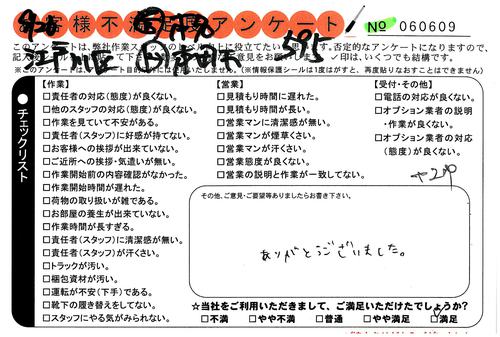 お客様不満足度アンケート
No 060609
このアンケートは、弊社作業スタッフのレベル向上に役立てたい
否定的なアンケートになりますので、
✓印は、いくつでも結構です。
595
(※情報保護シールは1度はがすと、再度貼りなおすことはできません)
チェックリスト
【作業】
□責任者の対応(態度)が良くない。
□他のスタッフの対応(態度)が良くない。
□作業を見ていて不安がある。
□責任者(スタッフ)に好感が持てない。
□お客様への挨拶が出来ていない。
□ご近所への挨拶・気遣いが無い。
□作業開始前の内容確認がなかった。
□作業開始時間が遅れた。
□荷物の取り扱いが雑である。
□お部屋の養生が出来ていない。
□作業時間が長すぎる。
□責任者(スタッフ)に清潔感が無い。
□責任者(スタッフ)が汗くさい。
□トラックが汚い。
□梱包資材が汚い。
□運転が不安(下手)である。
□靴下の履き替えをしてない。
□スタッフにやる気がみられない。
【営業】
□見積もり時間に遅れた。
□見積もり時間が長い。
□営業マンに清潔感が無い。
□営業マンが煙草くさい。
□営業マンが汗くさい。
□営業態度が良くない。
□営業の説明と作業が一致してない。
【受付・その他】
□電話の対応が良くない。
□オプション業者の説明
・作業が良くない。
□オプション業者の対応
(態度)が良くない。
その他、ご意見・ご要望等ありましたらお書き下さい。
ありがとうございました。
☆当社をご利用いただきまして、ご満足いただけたでしょうか?
□不満 □やや不満 □普通 □やや満足 □満足